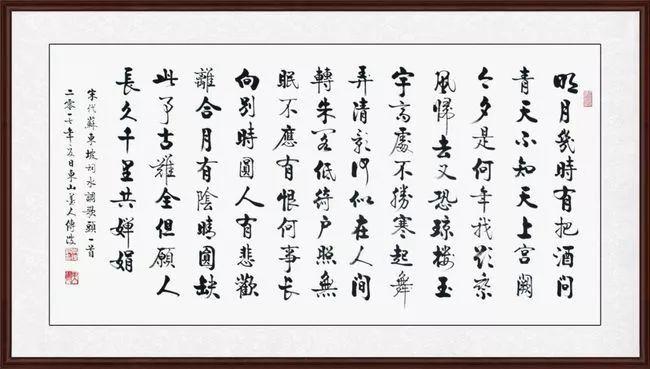 明月幾時有把酒問
青天不知天上宫闕
今夕是何年我欲乘
風歸去又恐瓊樓玉
宇高處不勝寒起舞
弄清影何似在人間
轉朱閣低綺户照無
眠不應有恨何事長
向别時圓人有悲歡
離合月有陰晴圓缺
此事古難全但願人
長久千里共嬋娟
宋代蘇東坡詞水調歌頭一首
二零一七年日東山人